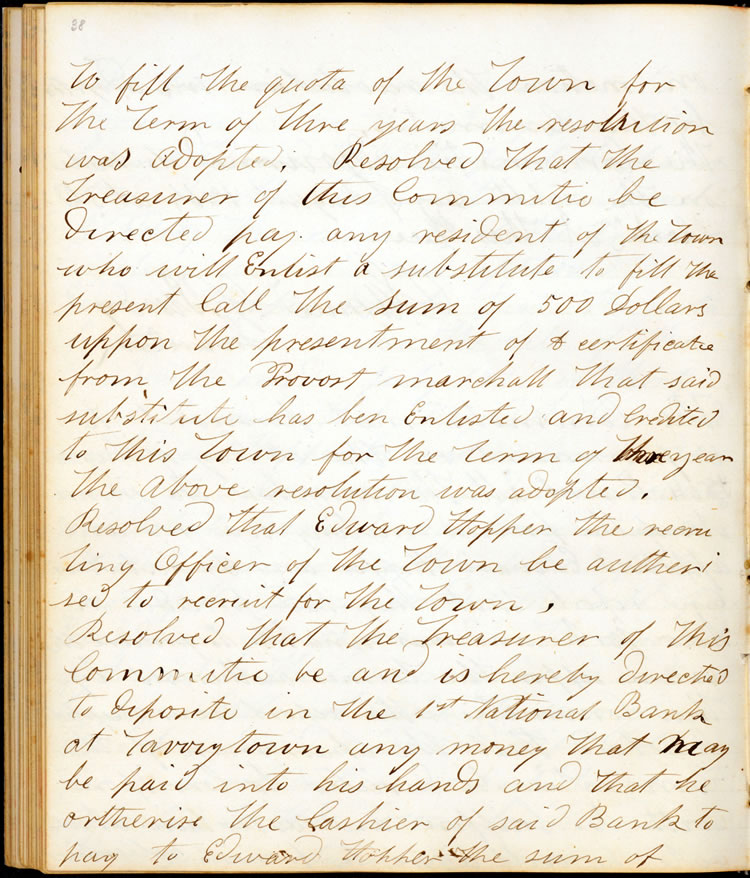 38
to fill the quota of the Town for
the term of thre years the resolution
was adopted. Resolved that the
treasurer of this Committie be
directed pay any resident of the town
who will Enlist a substitute to fill the
present Call the sum of 500 Dollars
uppon the presentment of a certificate
from the Provost marchall that said
substitute has ben Enlisted and Credited
to this Town for the term of three year
The above resolution was adopted.
Resolved that Edward Hopper the recru
ting Officer of the Town be autheri
sed to recruit for the Town.
Resolved that the treasurer of this
Committie be and is hereby directed
to deposite in the 1st National Bank
at Tarrytown any money that may
be paid into his hands and that he
ortherise the Cashier of said Bank to
pay to Edward Hopper the sum of